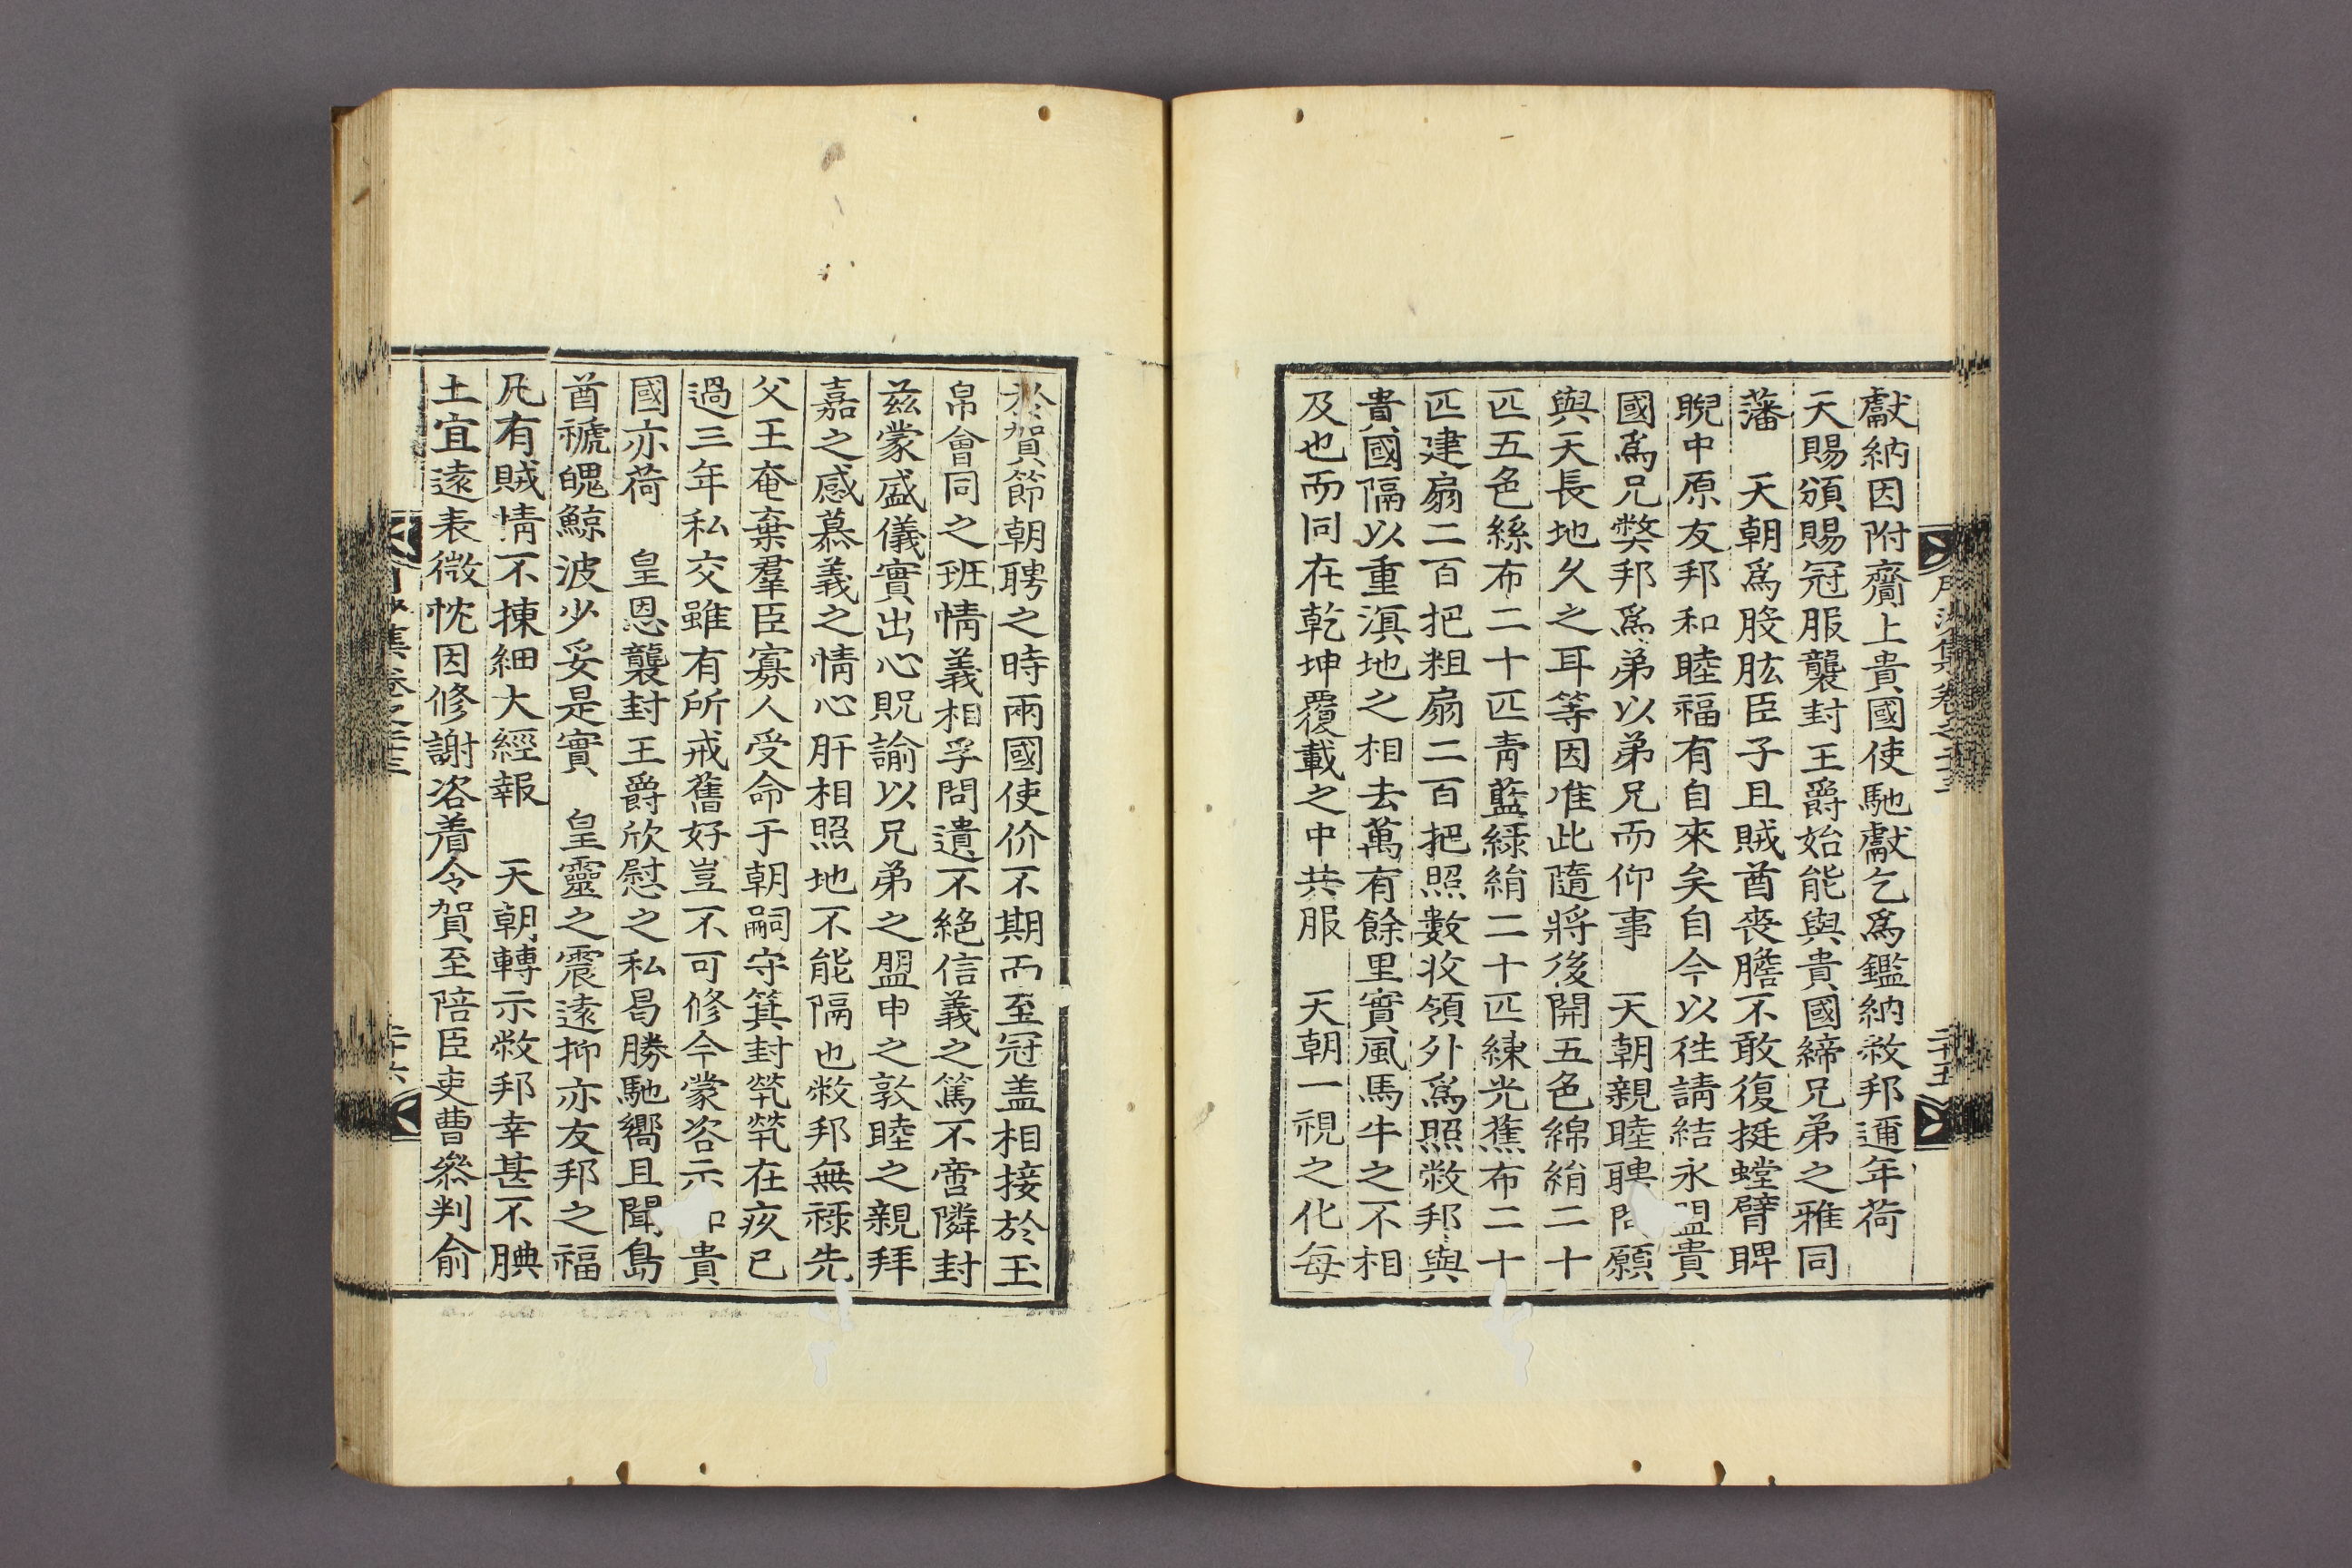 獻納因附齎上貴國使馳獻乞爲鑑納敝邦邇年荷
天賜頒賜冠服襲封王爵始能與貴國締兄弟之雅同
藩　天朝爲股肱臣子且賊酋喪膽不敢復挺螳臂睥
睨中原友邦和睦福有自來矣自今以徃請結永盟貴
國爲兄獘邦爲弟以弟兄而仰事　天朝親睦聘問願
與天長地久之耳等因准此隨將後開五色綿絹二十
匹五色絲布二十匹靑藍綠絹二十匹練光蕉布二十
匹建扇二百把粗扇二百把照數收領外爲照敝邦與
貴國隔以重溟地之相去萬有餘里實風馬牛之不相
及也而同在乾坤覆載之中共服　天朝一視之化每
月沙集卷之二十三
二十五
於賀節朝聘之時兩國使价不期而至冠盖相接於玉
帛會同之班情義相孚問遺不絕信義之篤不啻隣封
茲蒙盛儀實出心貺諭以兄弟之盟申之敦睦之親拜
嘉之感慕義之情心肝相照地不能隔也敝邦無祿先
父王奄棄羣臣寡人受命于朝嗣守箕封煢煢在疚已
過三年私交雖有所戒舊好豈不可修今蒙咨示貴
國亦荷　皇恩襲封王爵欣慰之私曷勝馳嚮且聞島
酋褫魄鯨波少妥是實　皇靈之震遠抑亦友邦之福
凡有賊情不揀細大經報　天朝轉示敝邦幸甚不腆
土宜遠表微忱因修謝咨着令賀至陪臣吏曹叅判俞
集卷之二十三
二十六